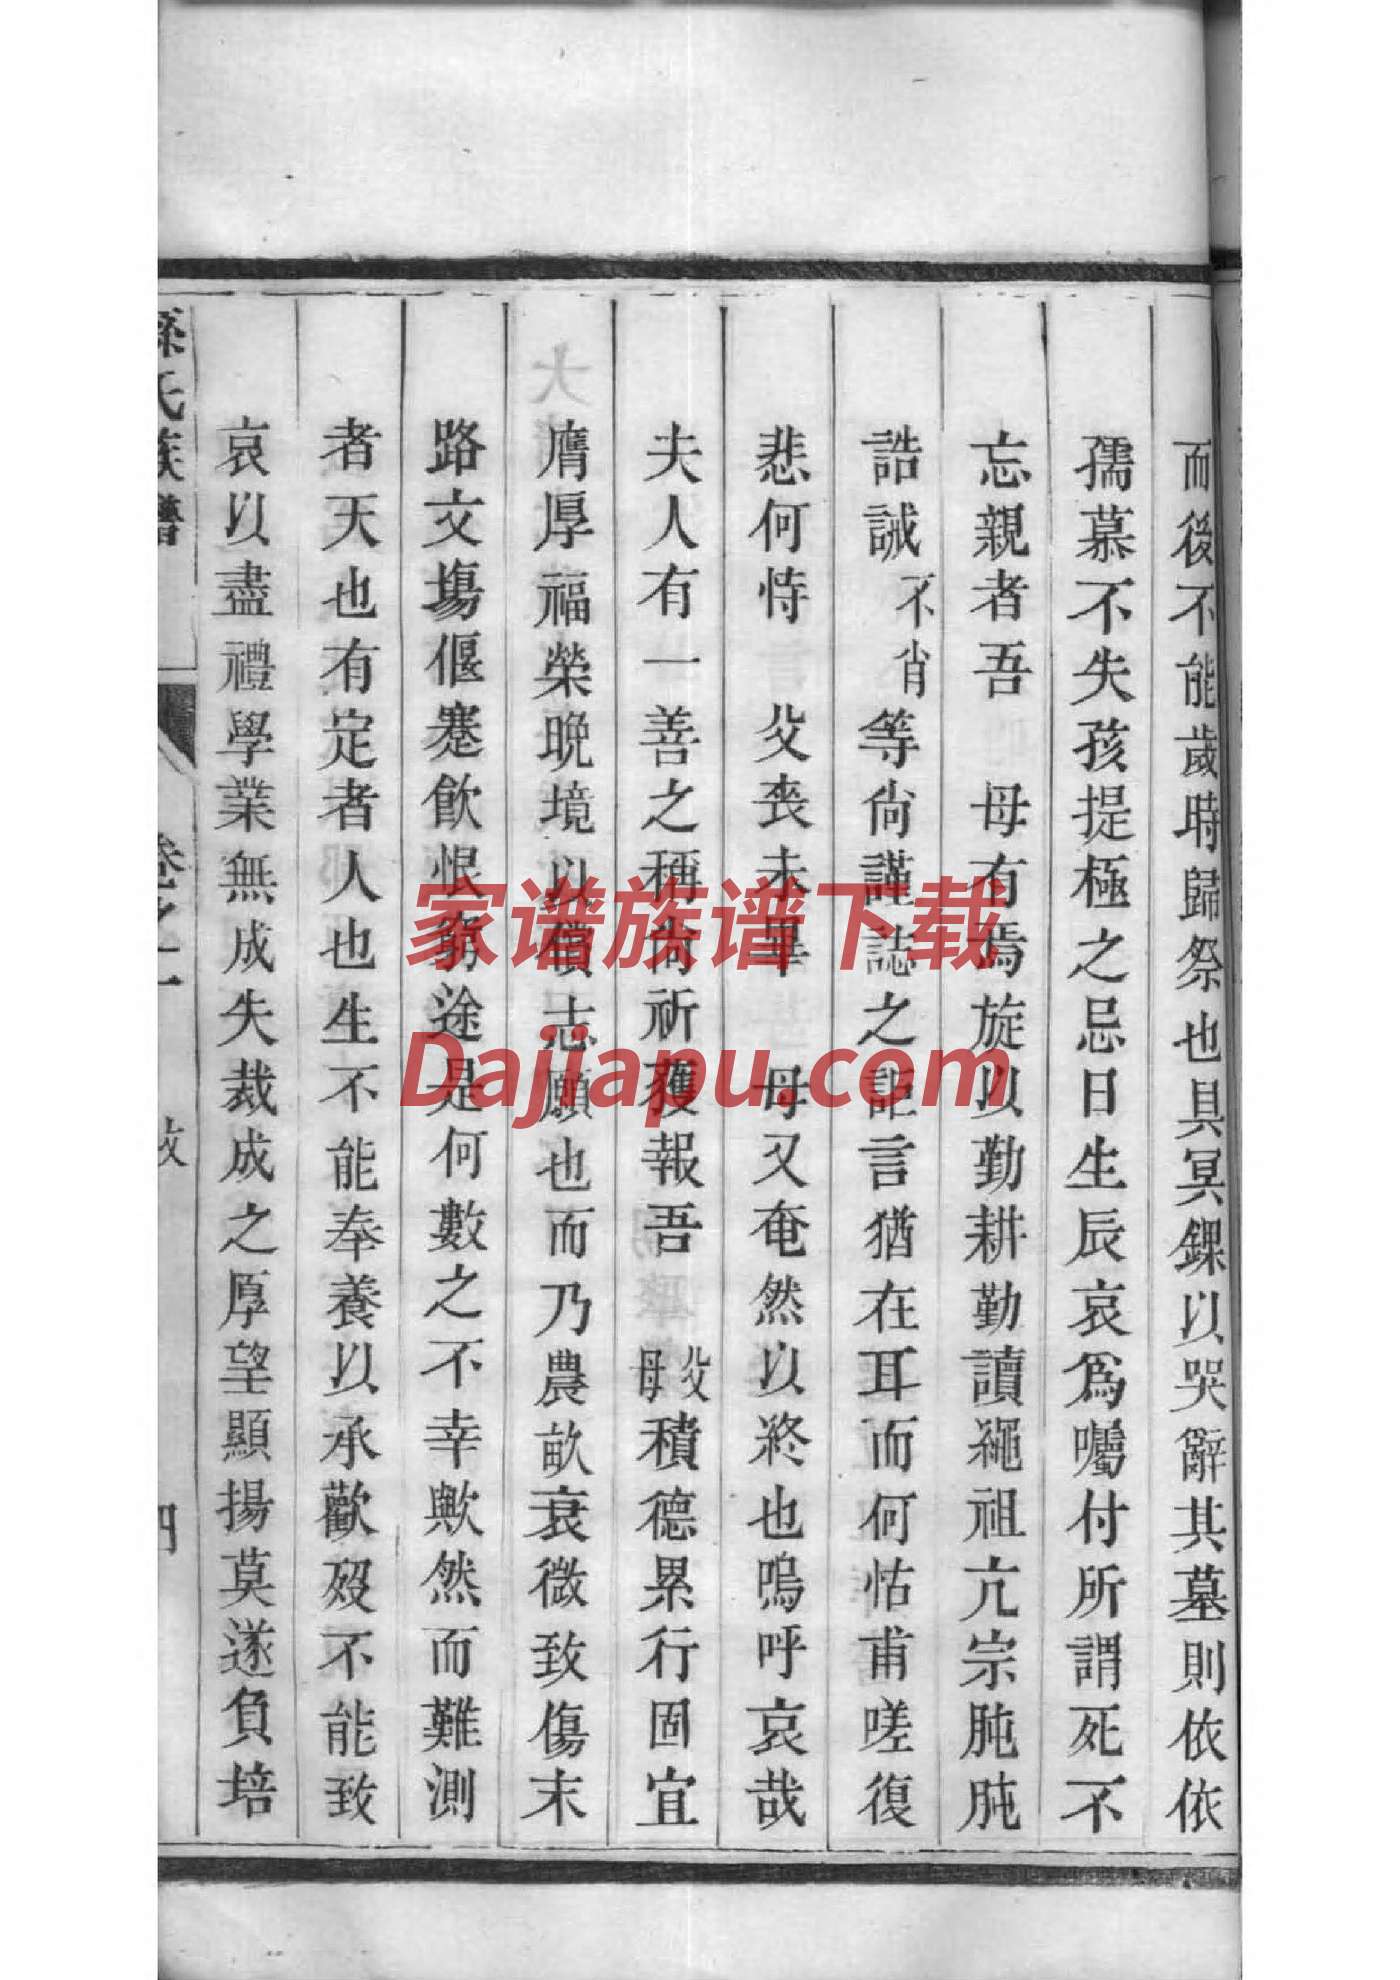 而後不能歲時歸祭也具冥錁以哭辭其墓則依依
孺慕不失孩提極之忌日生辰哀為囑付所謂死不
忘親者吾 母有焉旋以勤耕勤讀繩祖亢宗肫肫
誥誡不肖等尚謹誌之詎言猶在耳而何怙甫嗟復
悲何恃 父喪未畢 母又奄然以終也嗚呼哀哉
夫人有一善之稱尚祈獲報吾父母積德累行固宜
膺厚福榮晚境以償志願也而乃農畝衰微致傷末
路文塲偃蹇飲恨窮途是何數之不幸歟然而難測
者天也有定者人也生不能奉養以承歡歿不能致
哀以盡禮學業無成失裁成之厚望顯揚莫遂負培
孫氏族譜
卷之一
四
家谱族谱下载
Dajiapu.com